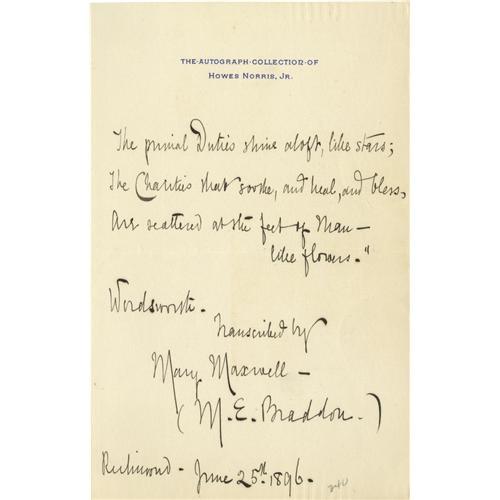 THE·AUTOGRAPH·COLLECTION·OF
HOWES NORRIS, JR.
The primal Duties shine aloft, like stars;
The Charities that soothe, and heal, and bless,
Are scattered at the feet of Man —
like flowers."
Wordsworth.
Transcribed by
Mary Maxwell —
(M. E. Braddon.)
Richmond - June 25th 1896.
240